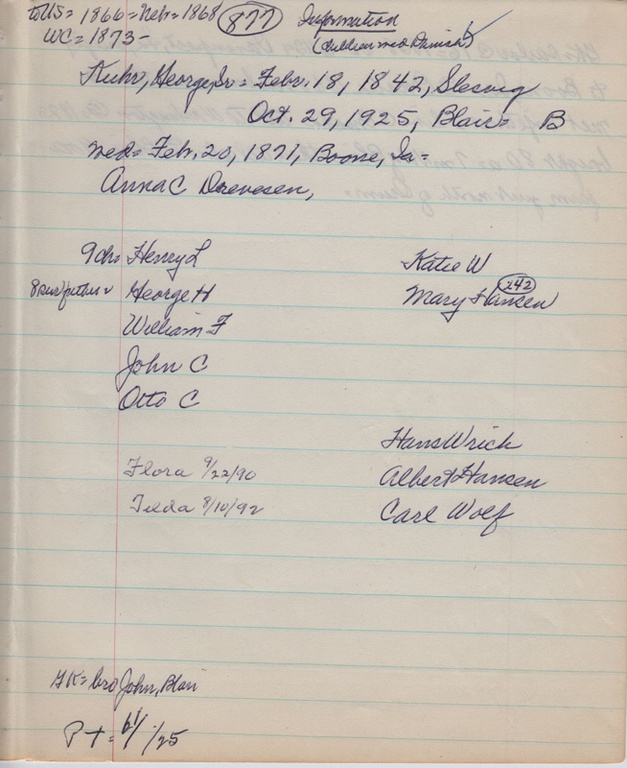 to US = 1866 = Neb = 1868 877 Information
WC = 1873 -
(children med Danish)
Kuhr, George, Sr = Febr. 18, 1842, Slesvig
Oct. 29, 1925, Blair = B
med = Feb. 20, 1871, Boone, Ia =
Anna C Drevesen,
9 ch = Henry L Katie W
George H Mary Hansen 242
William F
John C
Otto C
Hans Wrich
Flora 9/22/90 Albert Hansen
Tilda 8/10/92 Carl Wolf
GK = bro John, Blair
PT = /25